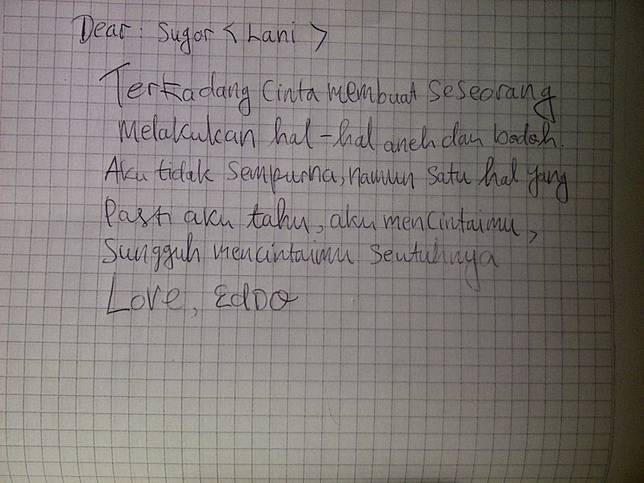 Dear : Sugar < Lani >
Terkadang Cinta membuat seseorang
Melakukan hal-hal aneh dan bodoh.
Aku tidak Sempurna, namun satu hal yang
Pasti aku tahu, aku mencintaimu,
Sungguh mencintaimu seutuhnya
Love, Edoo